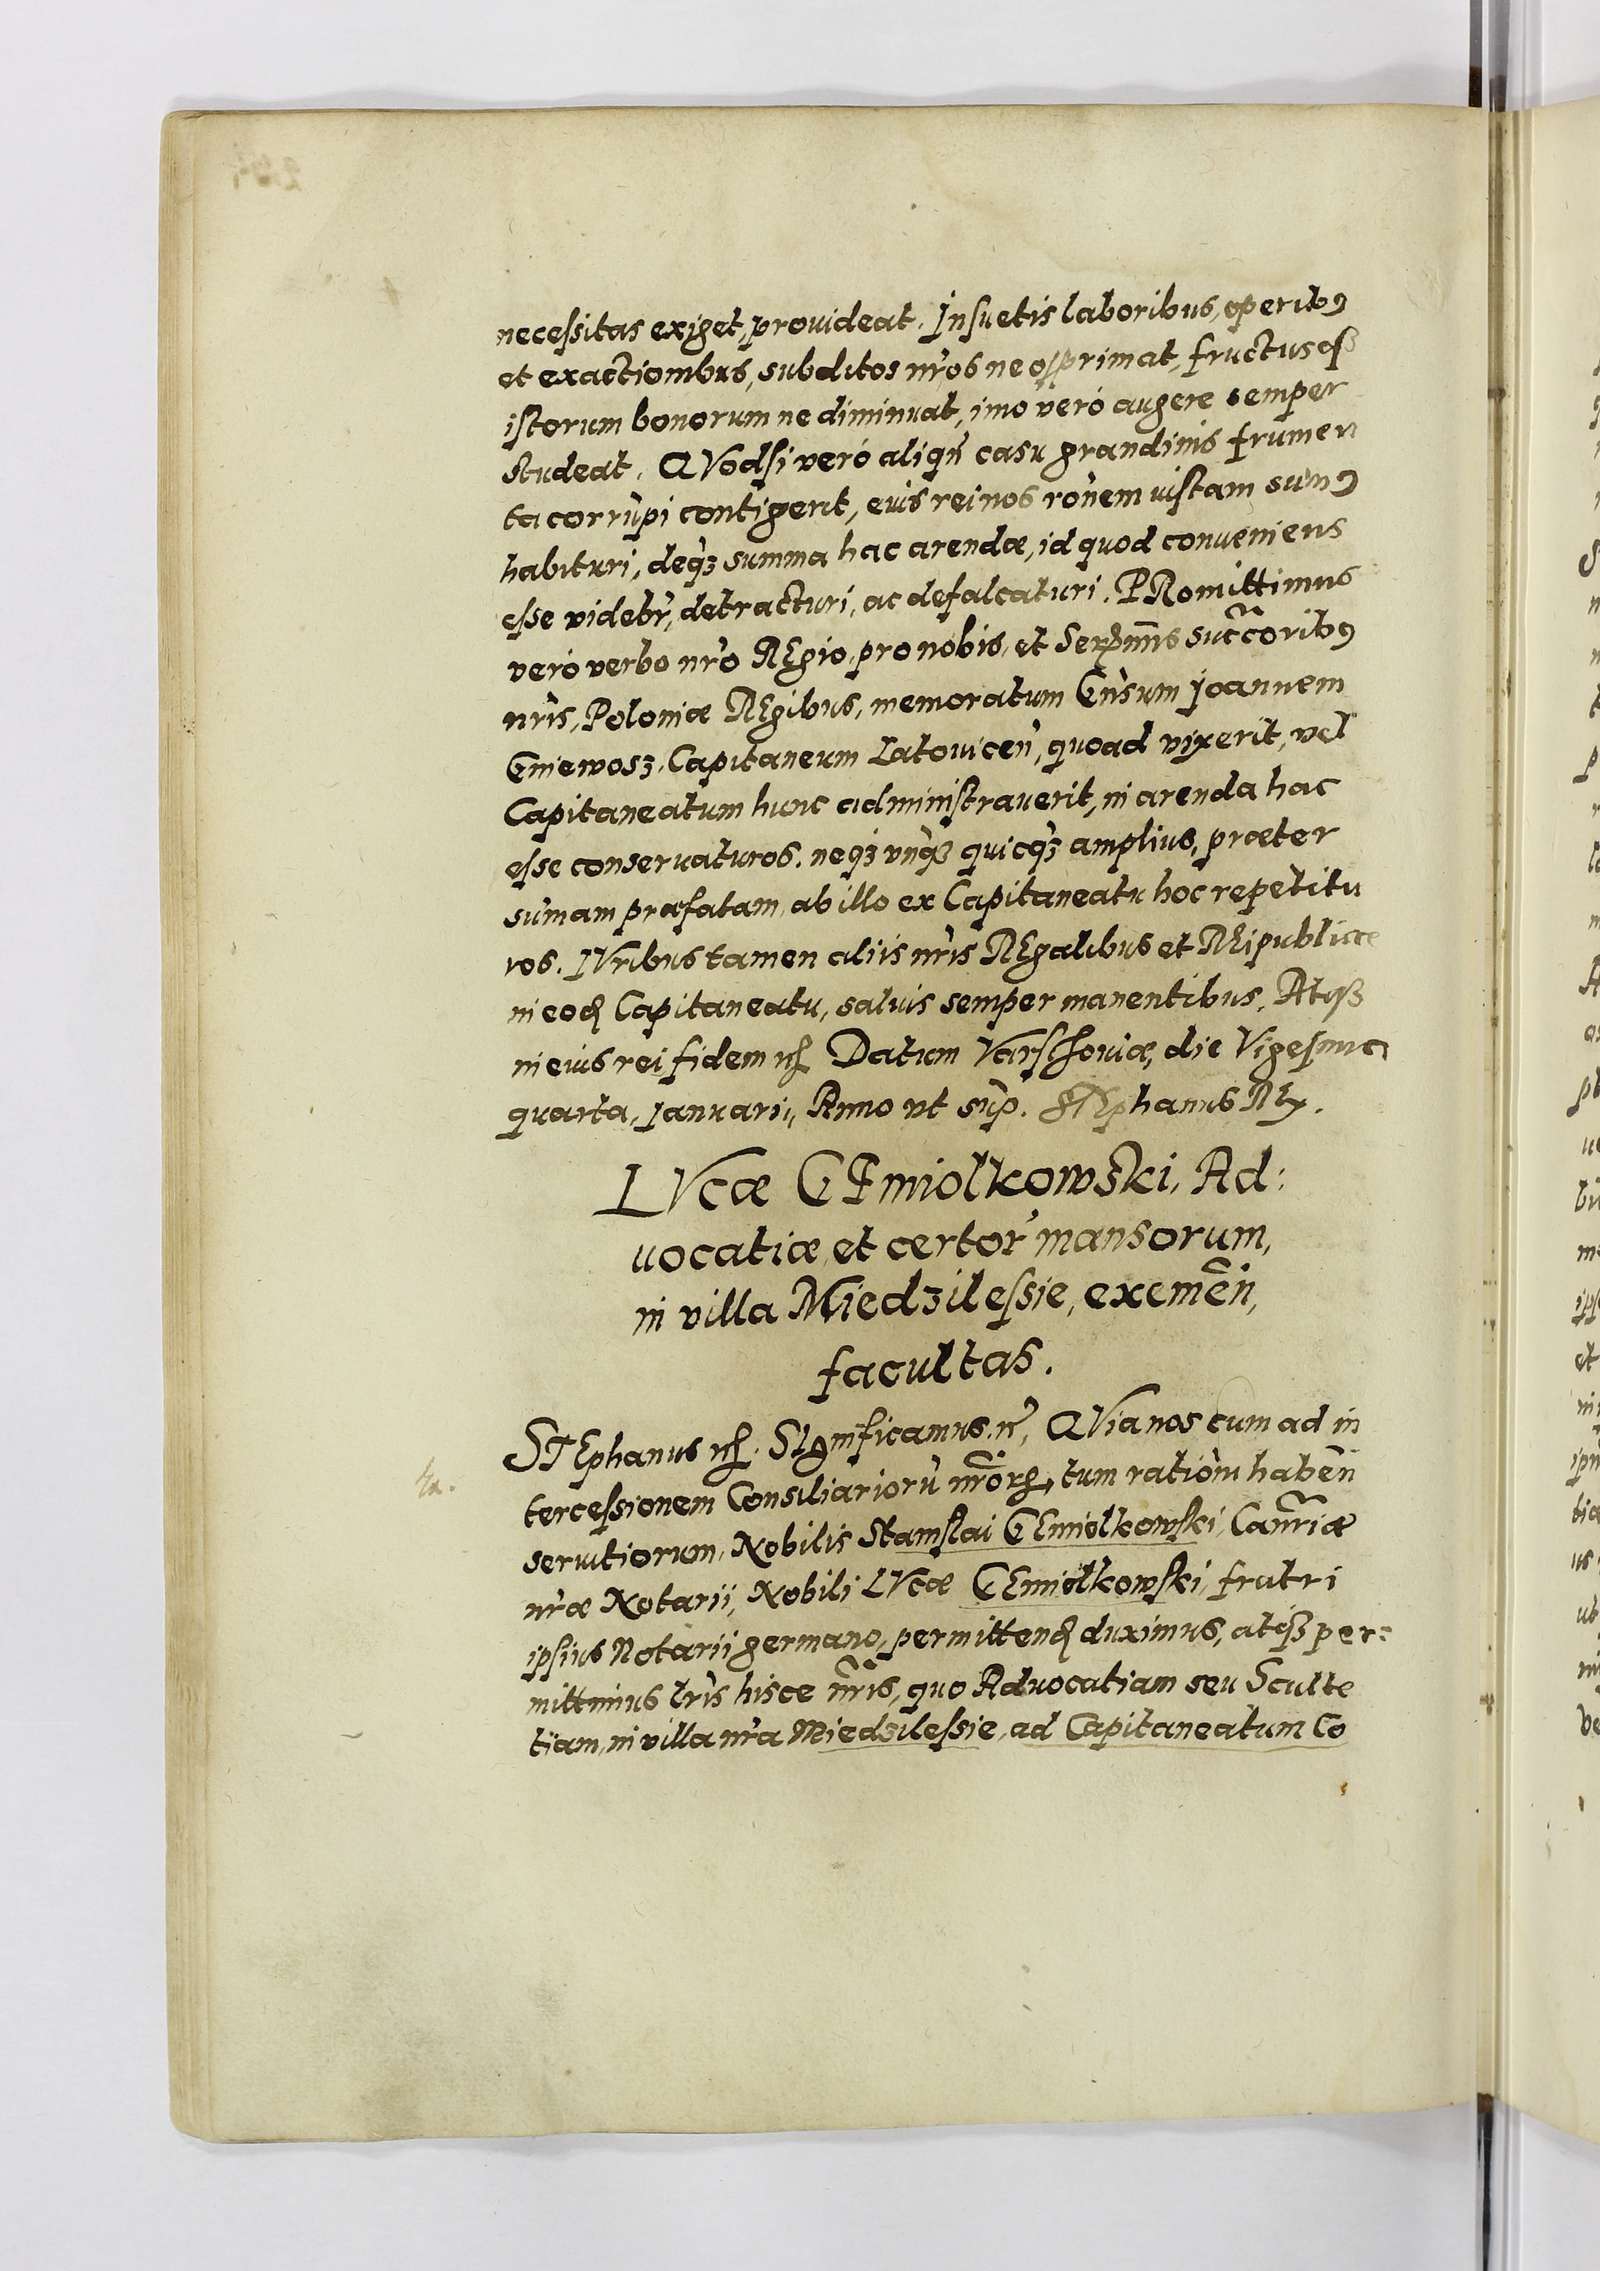 necessitas exiget, prouideat. Insuetis laboribus, operibꝯ
et exactionibus, subditos nr̃os ne opprimat, fructusqꝫ
istorum bonorum ne diminuat, imo verò augere semper
studeat. QVodsi verò aliqñ casu grandinis frumen
ta corrũpi contigerit, eius rei nos rõnem iustam sumꝯ
habituri, deqꝫ summa hac arendæ, id quod conueniens
esse videbr̃, detracturi, ac defalcaturi. PRomittimus
verò verbo nr̃o REgio, pro nobis, et Serẽmis succ̃oribꝯ
nr̃is, Poloniæ REgibus, memoratum Gñsum Joannem
Gniewosz, Capitaneum Latouiceñ, quoad vixerit, vel
Capitaneatum hunc administrauerit, in arenda hac
esse conseruaturos. neqꝫ vnqꝫ quicqꝫ amplius, præter
sum̃am præfatam, ab illo ex Capitaneatu hoc repetitu
ros. IVribus tamen aliis nr̃is REgalibus et REipublicæ
in eod Capitaneatu, saluis semper manentibus. Atqꝫ
in eius rei fidem etc. Datum Varschouiæ, die Vigesima
quarta, Januarii, Anno vt sup̃. STEphanus REx.
LVcæ GEmiolkowski, Ad:
uocatiæ, et certor̃ mansorum,
in villa Miedzilessie, exemeñ,
facultas.
STEphanus etc. SIgnificamus etc, QVia nos cum ad in
tercessionem Consiliariorũ nr̃orꝝ, tum ratiõm habeñ
seruitiorum, Nobilis Stanislai GEmiolkowski, Canc̃riæ
nr̃æ Notarii, Nobili LVcæ GEmiolkowski, fratri
ipsius Notarii germano, permittend duximus, atqꝫ per:
mittimus lr̃is hisce nr̃is, quo Aduocatiam seu Sculte
tiam, in villa nr̃a Miedzilessie, ad Capitaneatum Co